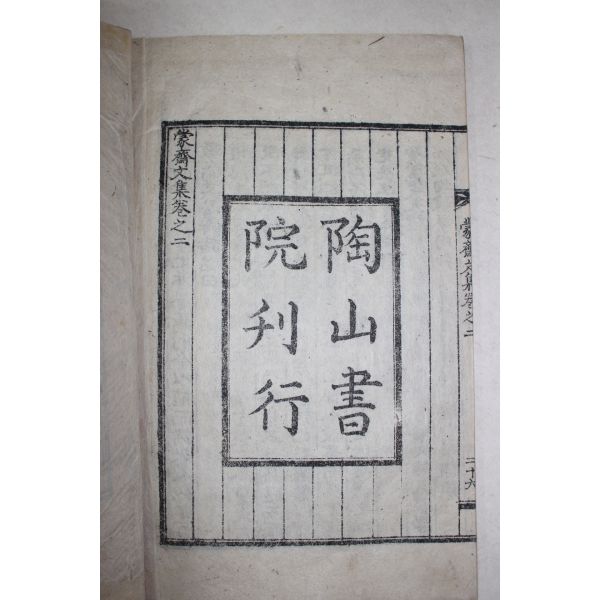 蒙齋文集卷之二
陶山書
院刊行
蒙齋文集卷之二
二十六